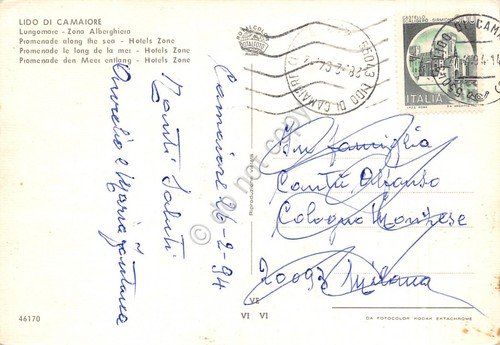 LIDO DI CAMAIORE
Lungomare - Zona Alberghiera
Promenade along the sea - Hotels Zone
Promenade le long de la mer - Hotels Zone
Promenade den Meer entlang - Hotels Zone
Camaiore 26-2-94
Tanti Saluti
Aurelio e Maria
55043 LIDO DI CAMAIORE
ITALIA
Famiglia
Cantù Alfonso
Cologno Monzese
20093 Milano
© not copy
Riproduzione
VE
VI VI
46170
DA FOTOCOLOR KODAK EKTACHROME